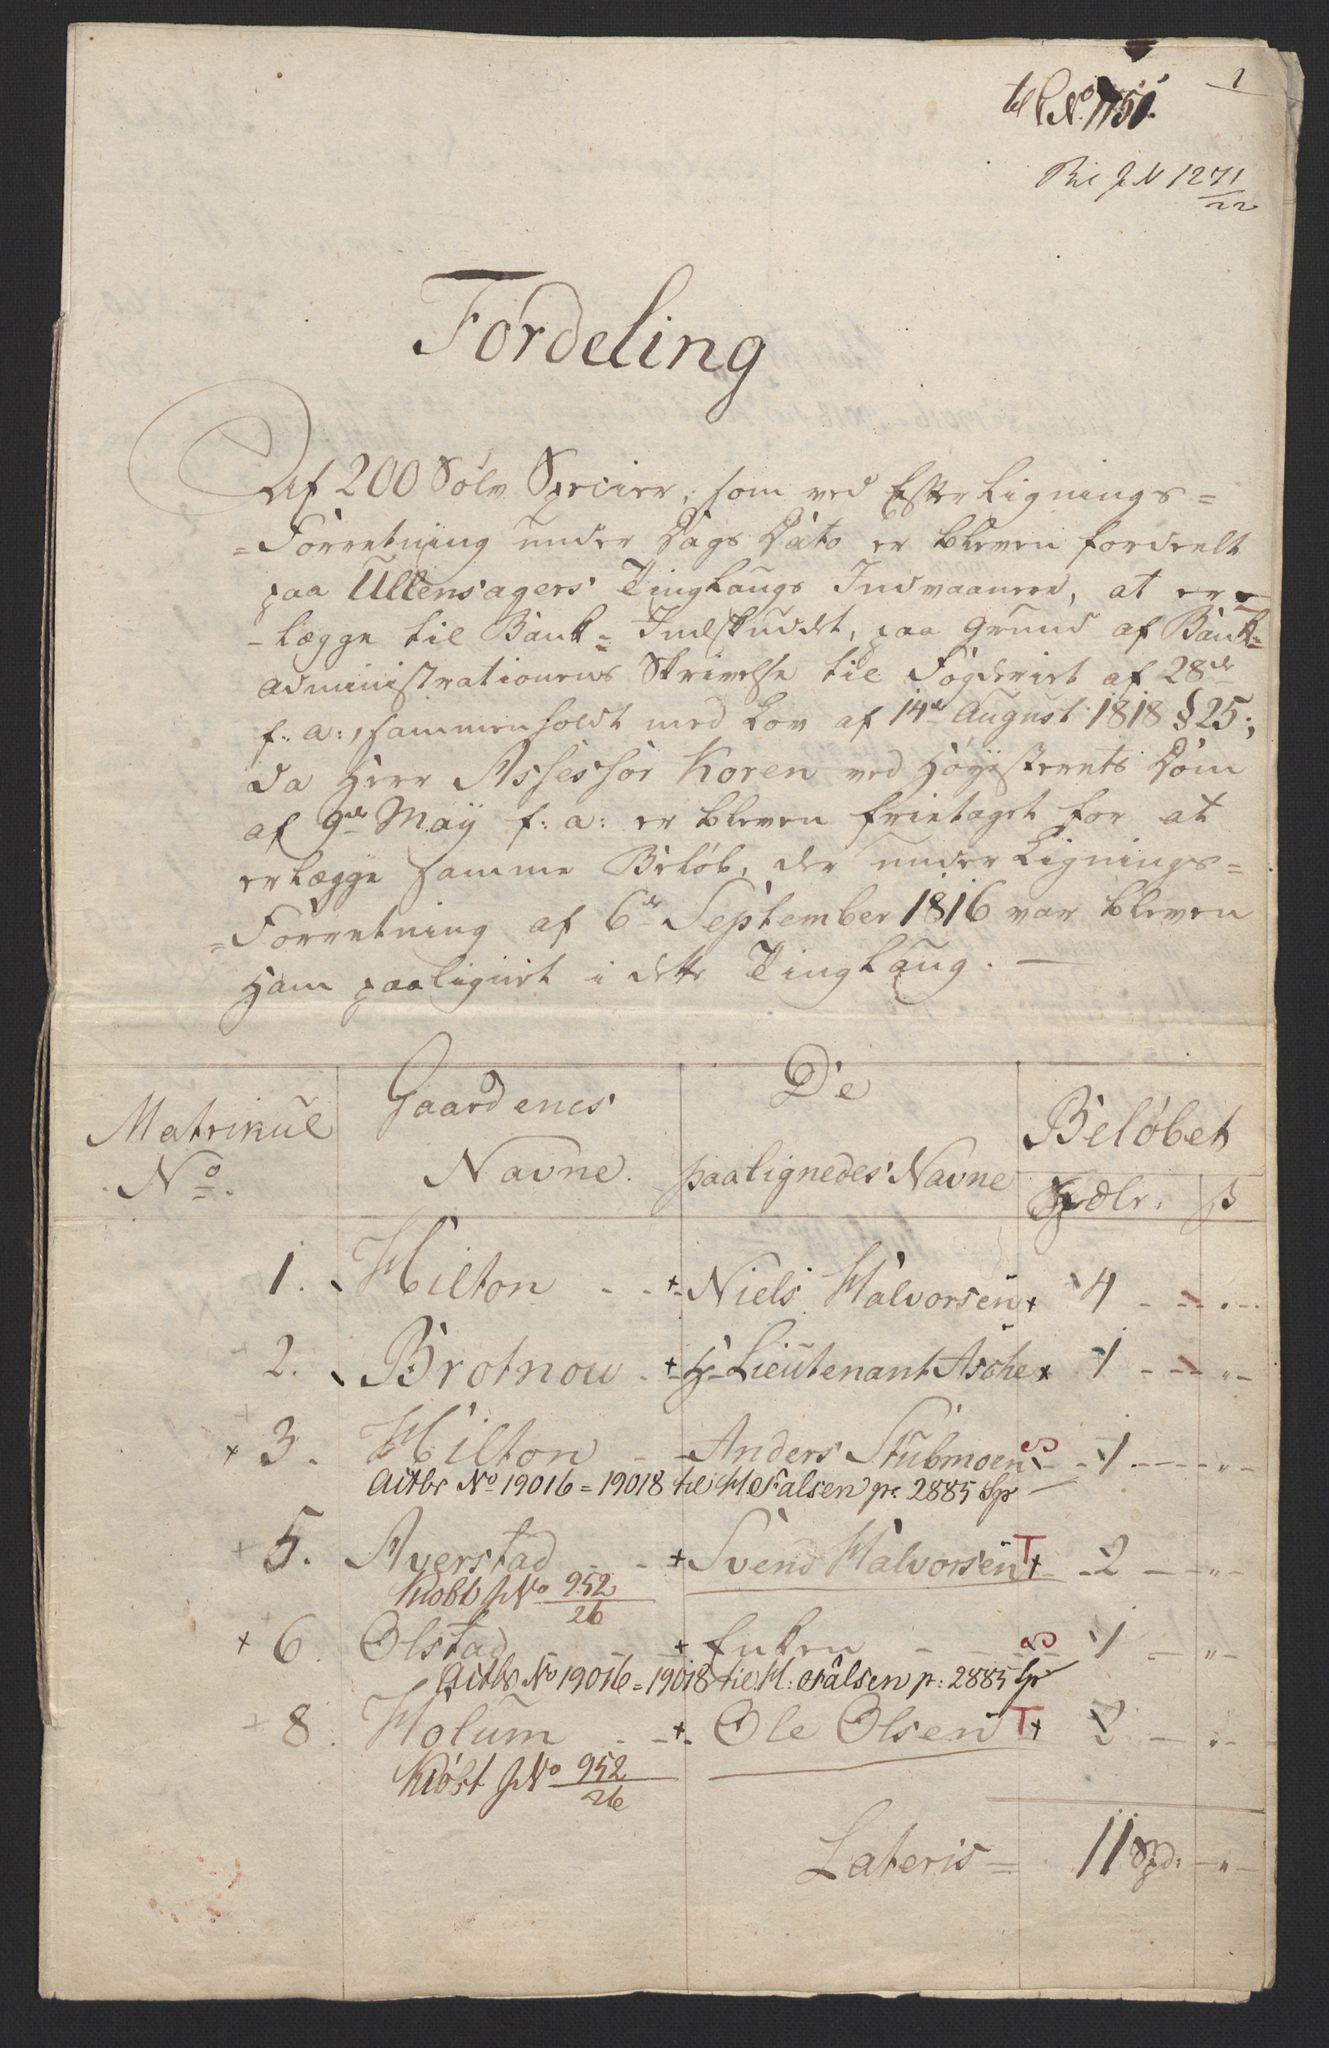 1
til No. 1151.
Bil J N 1271/22
Fordeling
Af 200 Sölv Specier, som ved Efterlignings=
=Forretning under Dags Dato er bleven fordeelt
paa Ullensagers Tinglaugs Indvaanere, at er=
=lægge til Bank= Indskuddet, paa Grund af Bank=
administrationens Skrivelse til Fogderiet af 28de
f: a:, sammenholdt med Lov af 14de August 1818 § 25;
da Herr Assessor Koren ved Høyesterets Dom
af 9de May f: a: er bleven frietaget for at
erlægge samme Beløb, der under Lignings=
=Forretning af 6de September 1816 var bleven
ham paalignet i dette Tinglaug. —
Matrikul No. Gaardenes Navne. De paalignedes Navne Beløbet
Spdlr. ß
1. Hilton - - + Niels Halvorsen + 4 - - " -
2. Brotnow - + Hr Lieutenant Asche + 1 - - " -
+ 3. Hilton - - Anders Stubmoen 1 - - " -
Actbr No 19016 = 19018 til H Falsen pr. 2885 Sp
+ 5. Averstad - - + Svend Halvorsen T + 2 - - " -
Kiöbt J No 952/26
+ 6. Olstad - - + Enken - - 1 - " -
Actbr No 19016 = 19018 til H: Falsen p: 2885 Sp
+ 8. Holum - - + Ole Olsen T + 2 - " -
Kiöbt J No 952/26
Lateris = 11 Spd: - " -